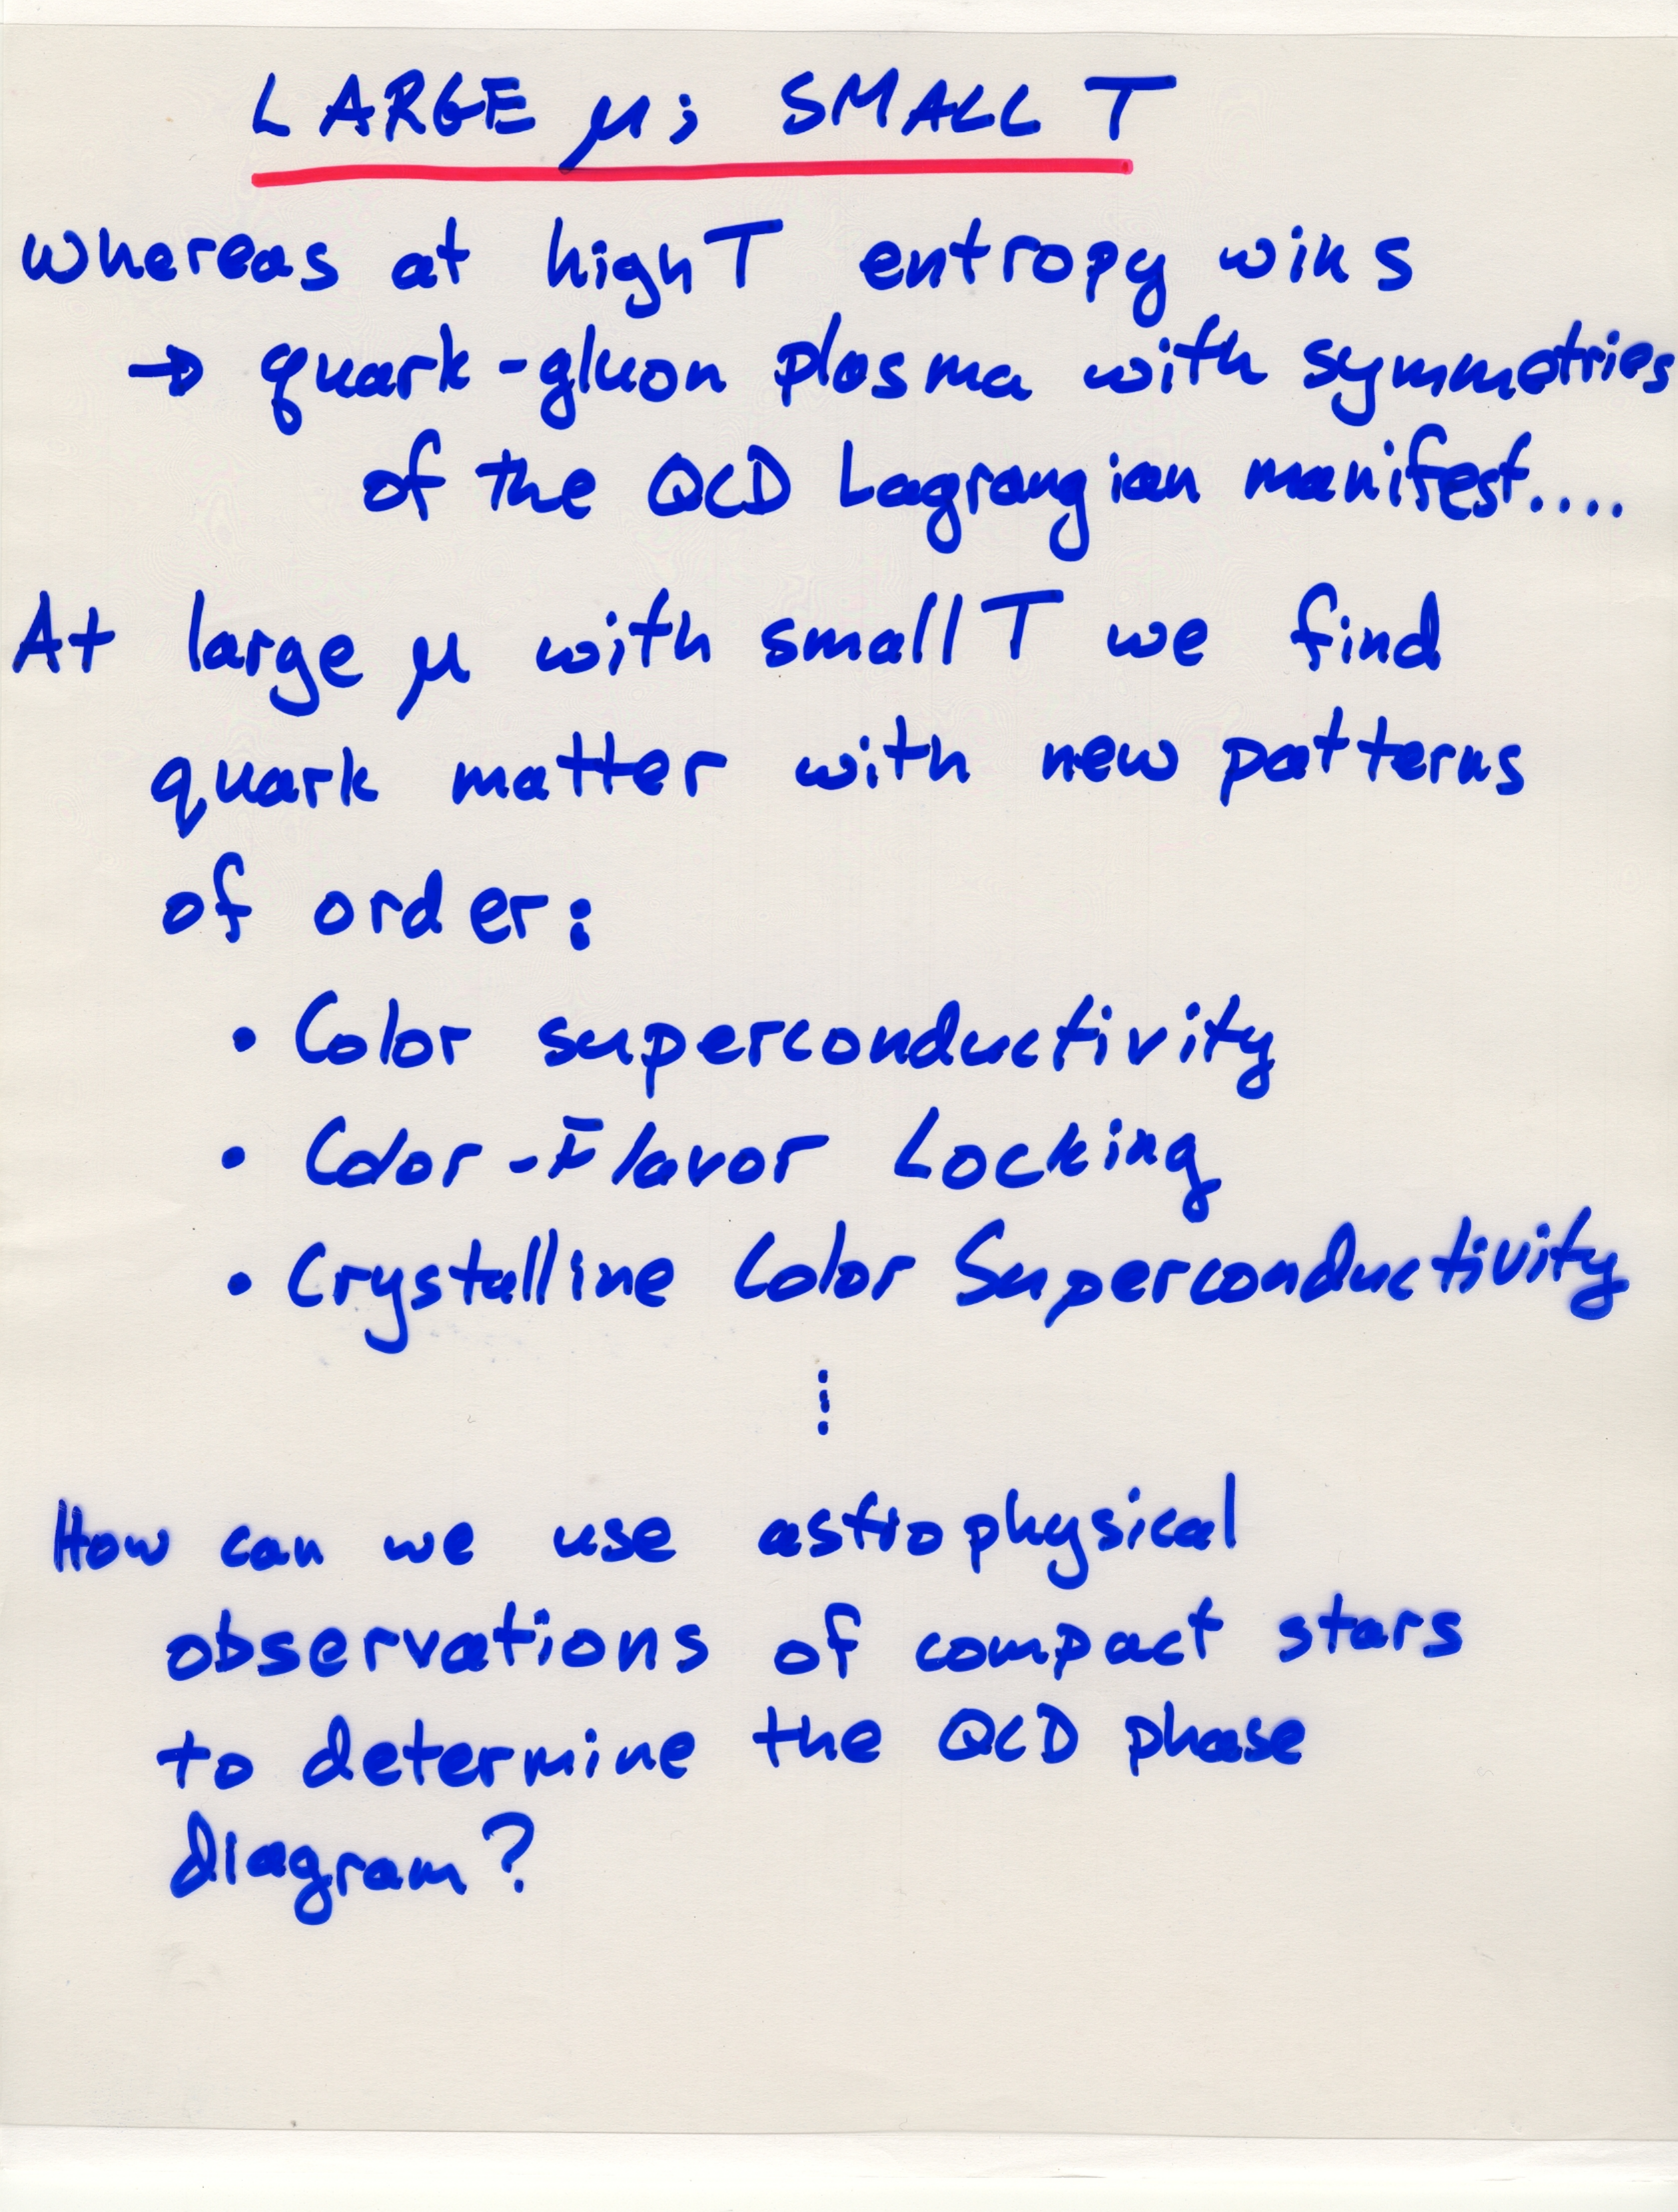 LARGE μ; SMALL T
Whereas at high T entropy wins
→ quark-gluon plasma with symmetries
of the QCD Lagrangian manifest....
At large μ with small T we find
quark matter with new patterns
of order:
• Color superconductivity
• Color-Flavor Locking
• Crystalline Color Superconductivity
⋮
How can we use astrophysical
observations of compact stars
to determine the QCD phase
diagram?